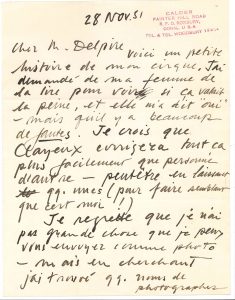 28 NOV. 51
CALDER
PAINTER HILL ROAD
R.F.D. ROXBURY
CONN. U.S.A.
TEL. & TEL. WOODBURY
Cher M. Delpire
voici un petite
histoire de mon cirque. J'ai
demandé de ma femme de
la lire pour voir si ça valait
la peine, et elle m'a dit "oui"
- mais qu'il y a beaucoup
de fautes. Je crois que
Clayeux corrigera tout ça
plus facilement que personne
d'autre - peutêtre en laissant
qq. unes (pour faire semblant
que c'est moi!!)
Je regrette que je n'ai
pas grande chose que je peux
vous envoyer comme photo
- mais en cherchant
j'ai trouvé qq. noms de
photographes